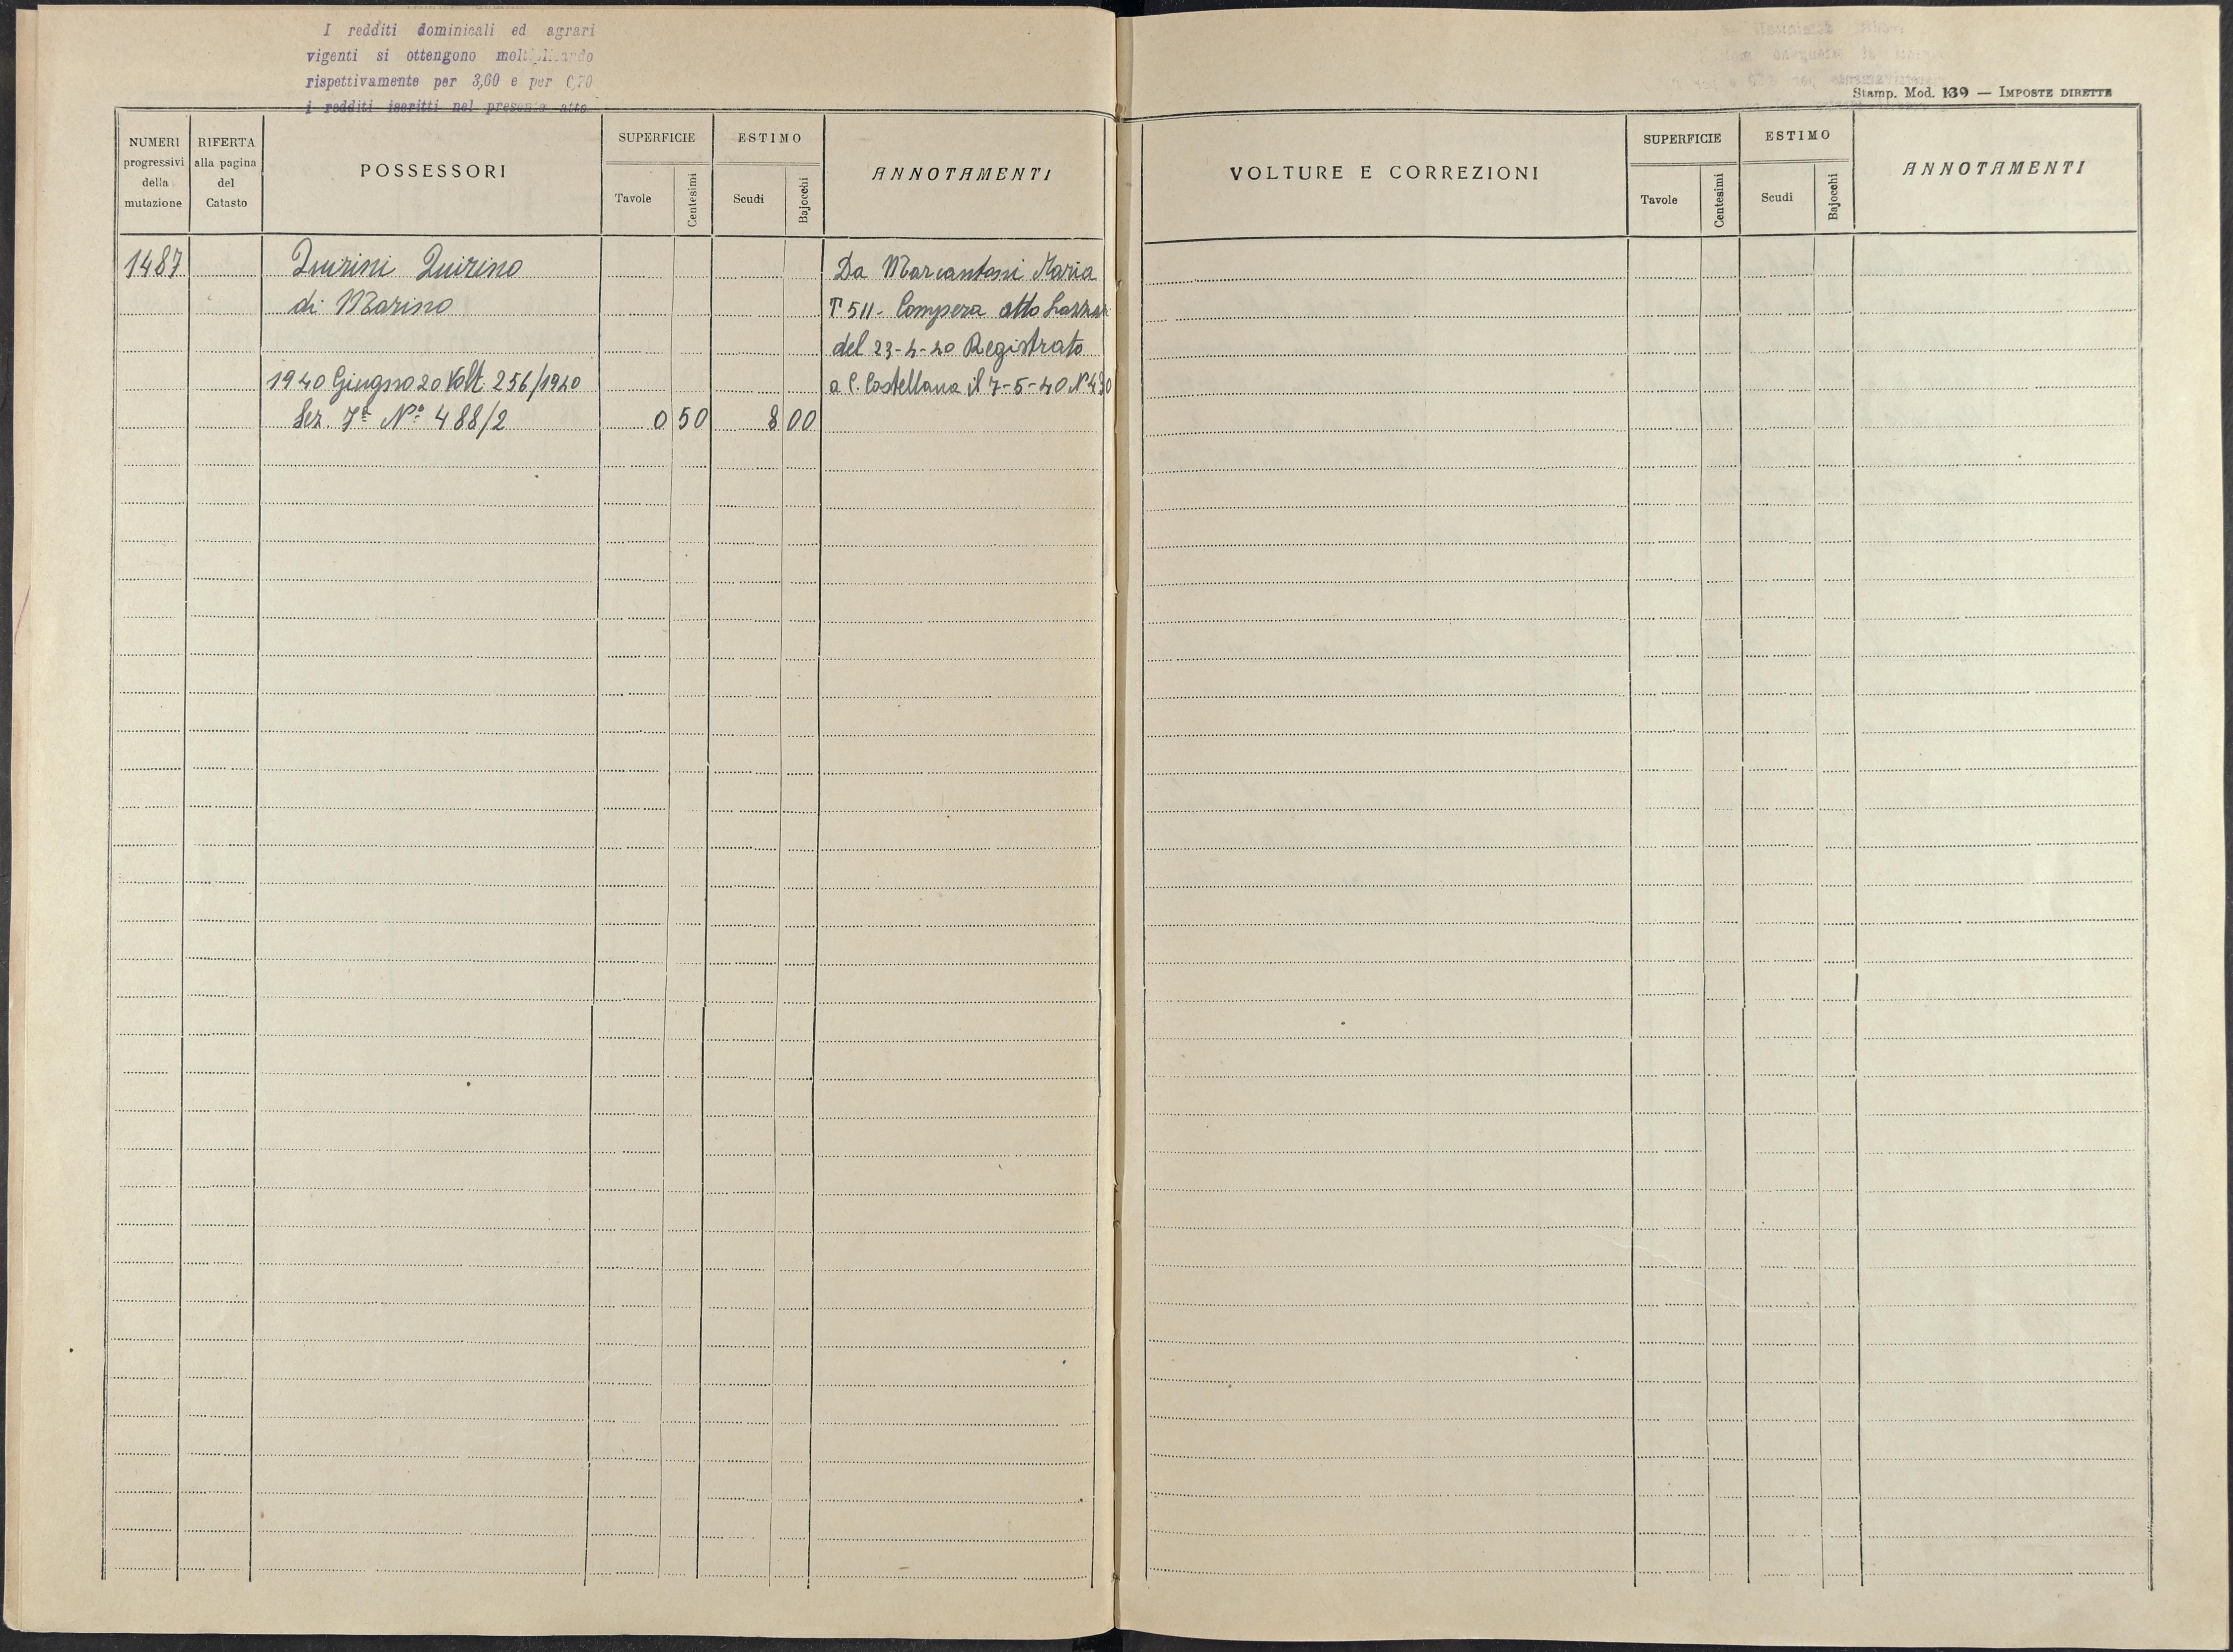 I redditi dominicali ed agrari
vigenti si ottengono moltiplicando
rispettivamente per 3,60 e per 0,70
i redditi iscritti nel presente atto
Stamp. Mod. 139 — IMPOSTE DIRETTE
NUMERI progressivi della mutazione
RIFERTA alla pagina del Catasto
POSSESSORI
SUPERFICIE
Tavole
Centesimi
ESTIMO
Scudi
Bajocchi
ANNOTAMENTI
VOLTURE E CORREZIONI
SUPERFICIE
Tavole
Centesimi
ESTIMO
Scudi
Bajocchi
ANNOTAMENTI
1487 Quirini Quirino Da Marcantoni Maria
di Marino T 511 - Compera atto
del 23-4-40 Registrato
1940 Giugno 20 Volt. 256/1940 a C. Castellana il 7-5-40 N 430
Sez. Nº 488/2 0 50 8 00